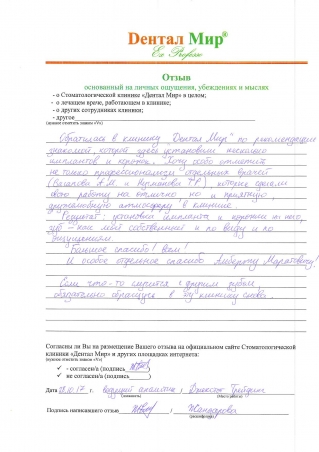 Дентал Мир®
Ex Professo
Отзыв
основанный на личных ощущения, убеждениях и мыслях
- о Стоматологической клинике «Дентал Мир» в целом;
- о лечащем враче, работающем в клинике;
- о других сотрудниках клиники;
- другое
(нужное отметить знаком «V»)
Обратилась в клинику "Дентал Мир" по рекомендации
знакомой, которой здесь установили несколько
имплантов и коронок. Хочу особо отметить
не только профессионализм отдельных врачей
которые сделали
свою работу на отлично, но и приятную,
доброжелательную атмосферу в клинике.
Результат: установка импланта и коронки на него,
зуб - как мой собственный и по виду и по
ощущениям.
Большое спасибо! Всем!
И особое отдельное спасибо Альберту Маратовичу!
Если что-то случится с другим зубом
обязательно обращусь в эту клинику снова.
Согласны ли Вы на размещение Вашего отзыва на официальном сайте Стоматологической
клиники «Дентал Мир» и других площадках интернета:
(нужное отметить знаком «V»)
- согласен(а) (подпись)
- не согласен(а) (подпись)
Дата 18.10.17 г. ведущий аналитик,
(должность) (Место работы)
Подпись написавшего отзыв
(расшифровка)